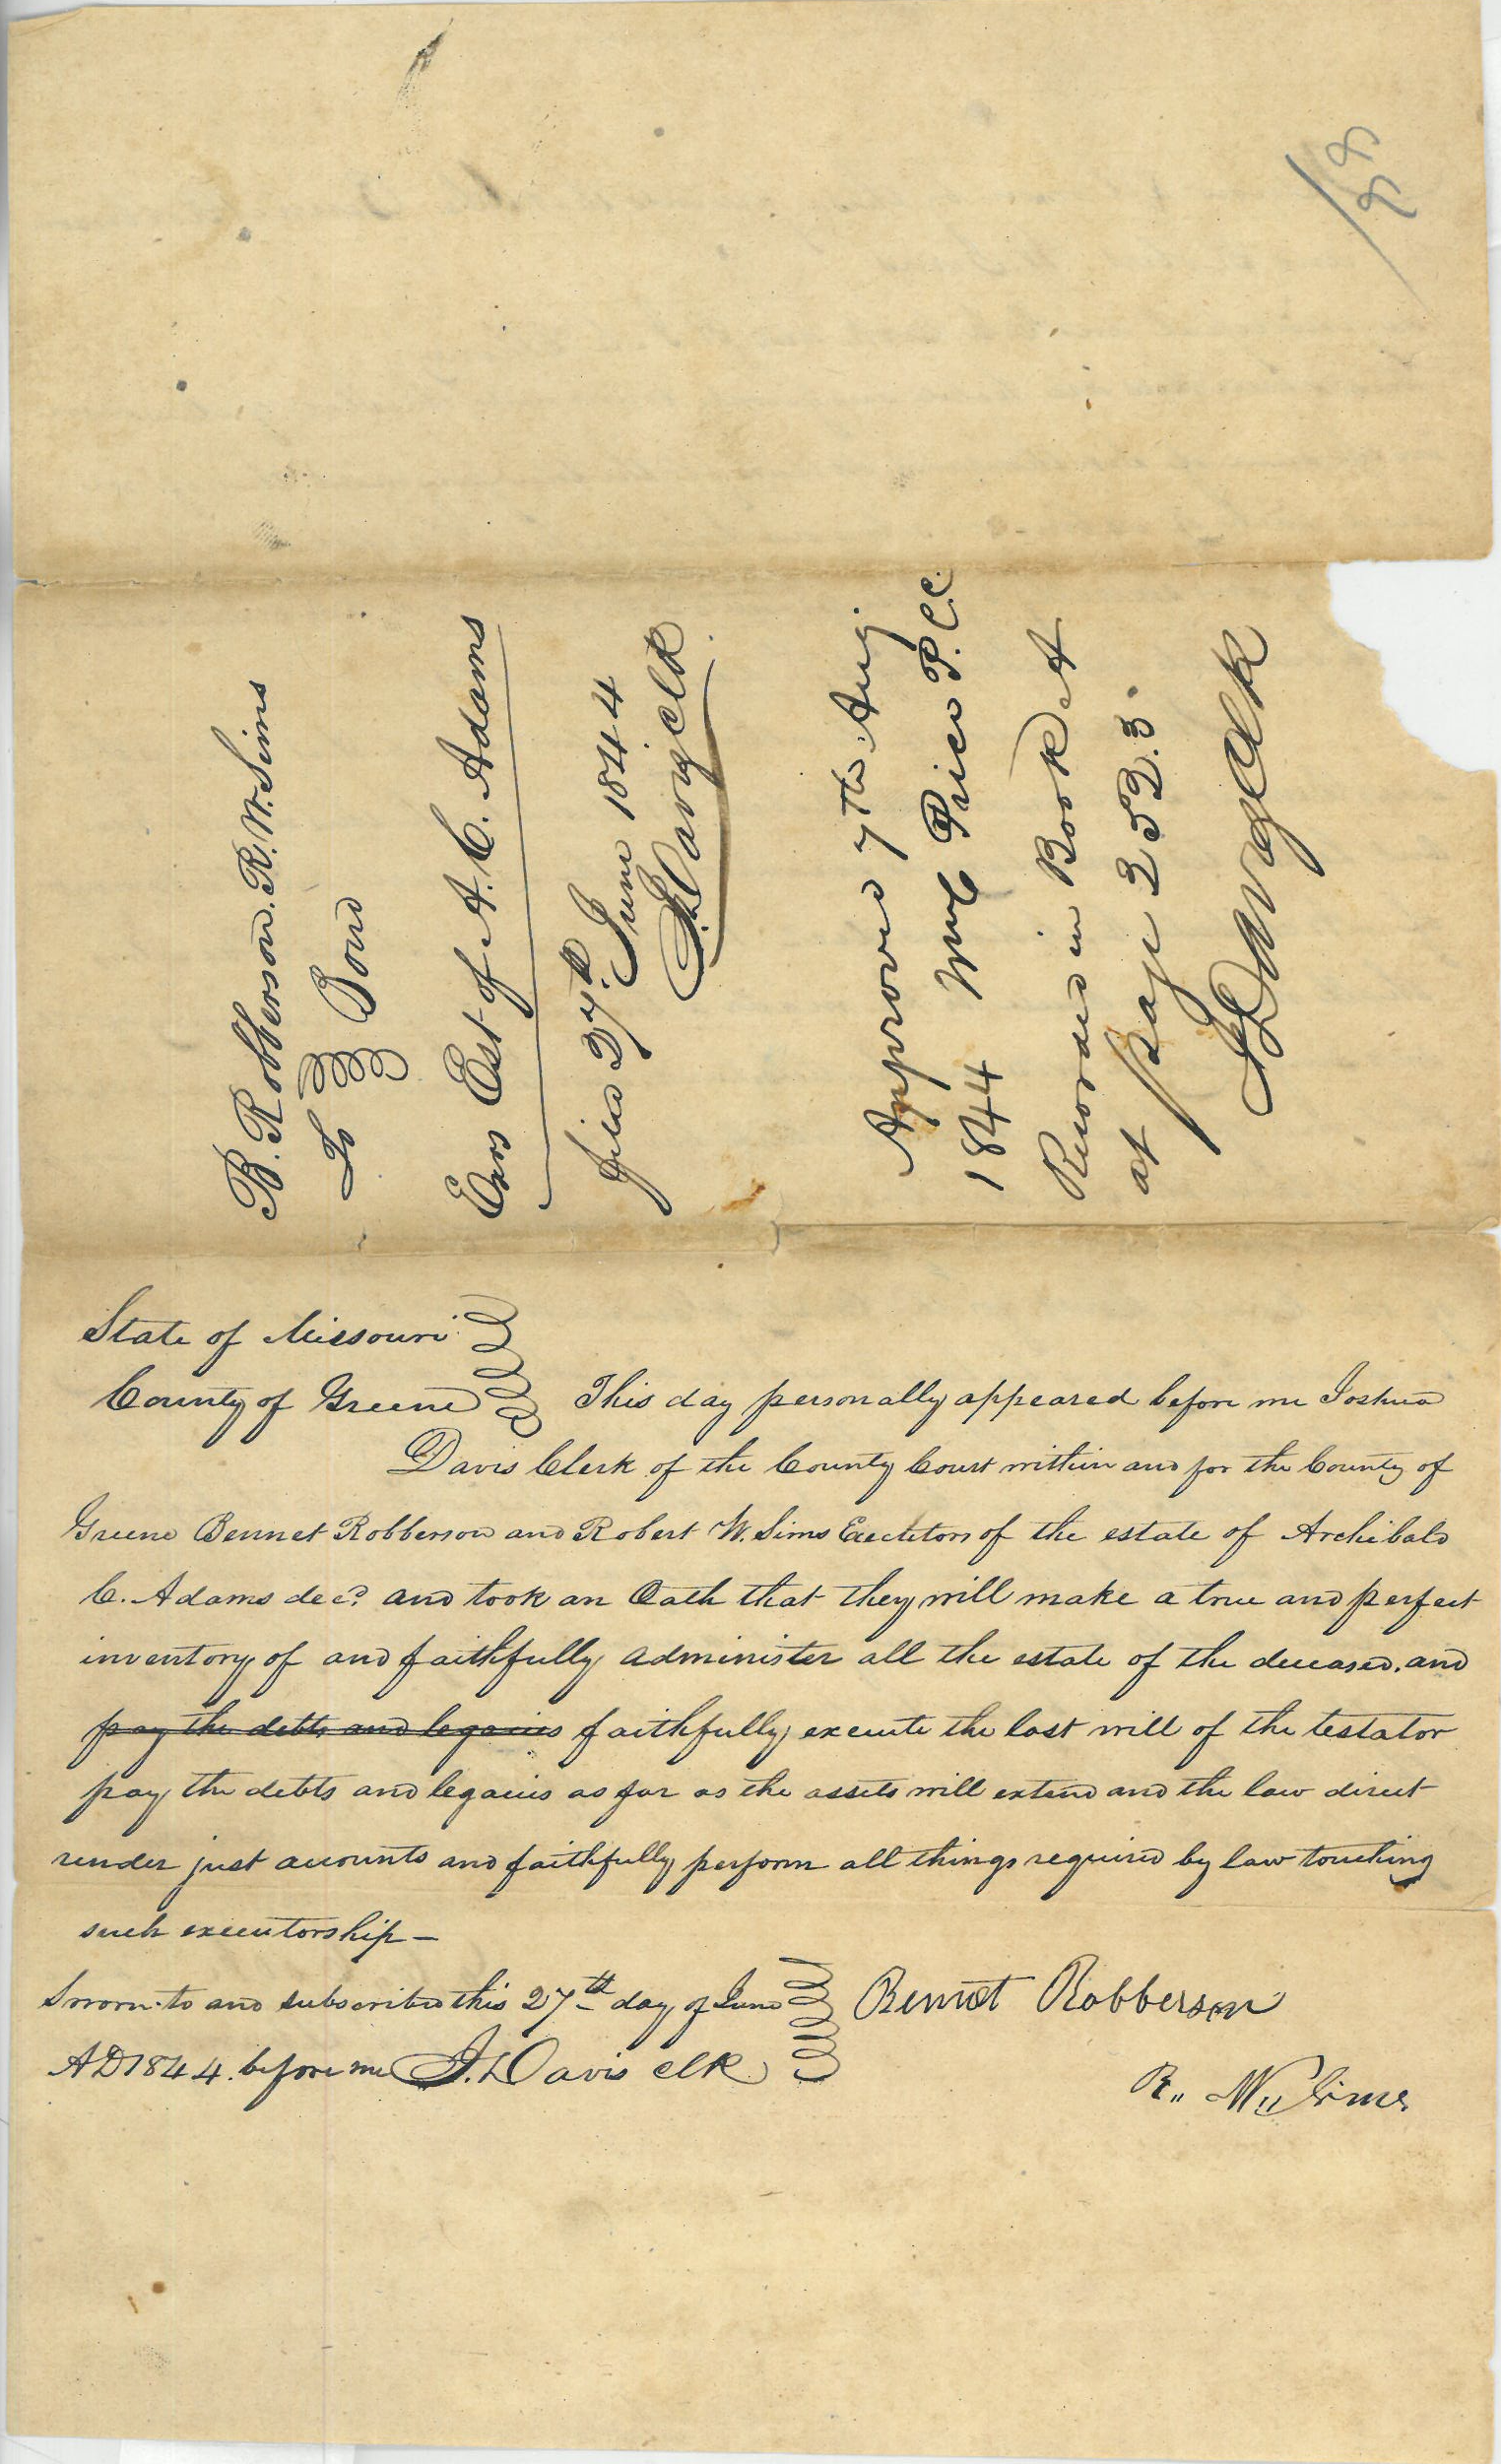 88
B. Robberson. R. W. Sims
To Bond
Exrs Est of A. C. Adams
filed 27th. June 1844
J. Davis clk
Approved 7th. Aug
1844 Wm C Price P.C.C.
Recorded in Book A
at Page 252.3.
J Davis Clk
State of Missouri
County of Greene This day personally appeared before me Joshua
Davis Clerk of the County Court within and for the County of
Greene Bennet Robberson and Robert W. Sims Executors of the estate of Archibald
C. Adams decd. and took an Oath that they will make a true and perfect
inventory of and faithfully administer all the estate of the deceased. and
pay the debts and legacies faithfully execute the last will of the testator
pay the debts and legacies as far as the assets will extend and the law direct
render just accounts and faithfully perform all things required by law touching
such executorship –
Sworn to and subscribed this 27th day of June Bennet Robberson
AD 1844. before me J. Davis clk
R. W. Sims